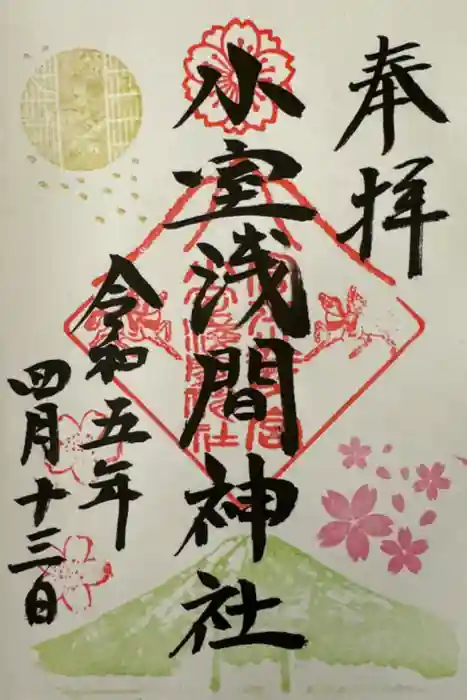 奉拝
小室浅間神社
令和五年
四月十三日